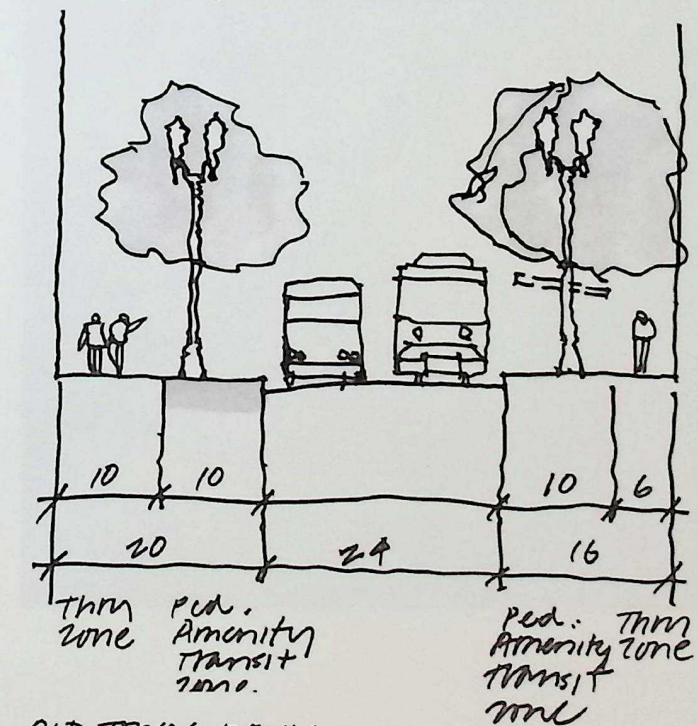 10 10 10 6
20 24 16
Thru Zone
Ped. Amenity Transit Zone.
Ped. Amenity Transit Zone
Thru Zone